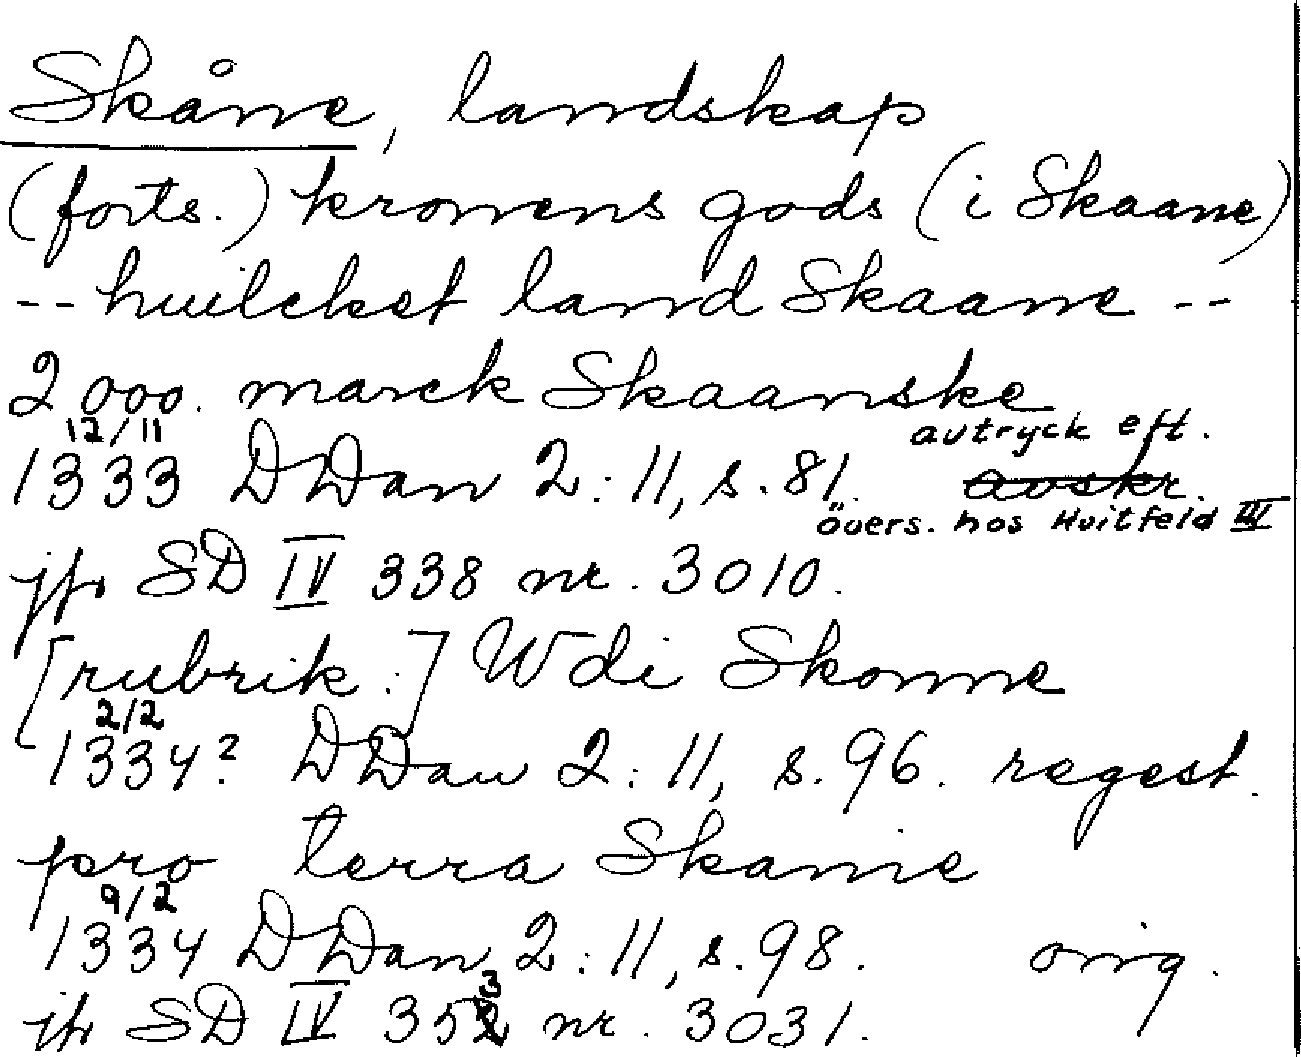 Skåne, landskap
(forts.) kronens gods (i Skaane)
-- huilcket land Skaane --
2000. marck Skaanske
12/11
avtryck eft.
1333 DDan 2:11, s. 81. avskr.
övers. hos Huitfeld III
jfr SD IV 338 nr. 3010.
[rubrik:] Wdi Skonne
2/2
1334? DDan 2:11, s. 96. regest.
pro terra Skanie
9/2
1334 DDan 2:11, s. 98. orig.
jfr SD IV 353 nr. 3031.